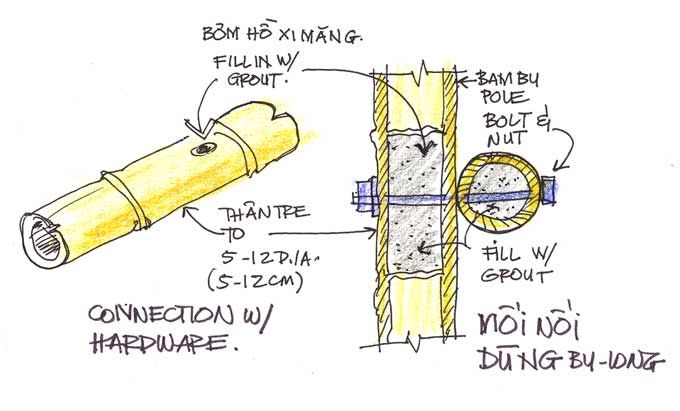 BƠM HỒ XI MĂNG.
FILL IN W/
GROUT.
BAMBU
POLE
BOLT &
NUT
THÂN TRE
TO
5-12 DIA.
(5-12CM)
FILL W/
GROUT
CONNECTION W/
HARDWARE.
MỐI NỐI
DÙNG BY-LONG